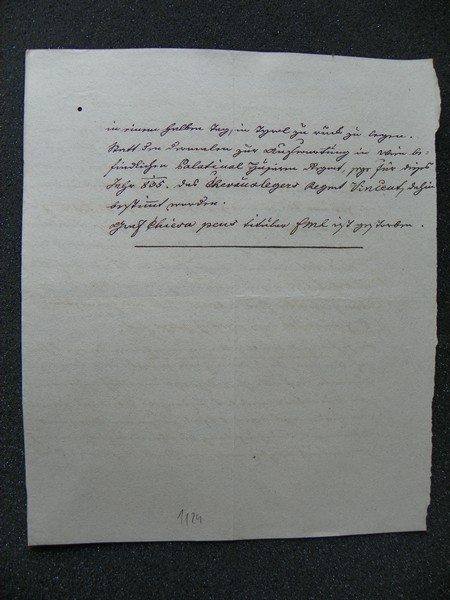 in einem halben Tag, in Tyrol zu rück zu legen.
Statt den dermalen zur Aufwartung in Wien be-
findlichen Palatinal Husaren Regmt, für dieses
Jahr 835. das Chevauxlegers Regmt Vincent, dahin
bestimmt worden.
Graf Chiesa pens titular fml ist gestorben.
1124